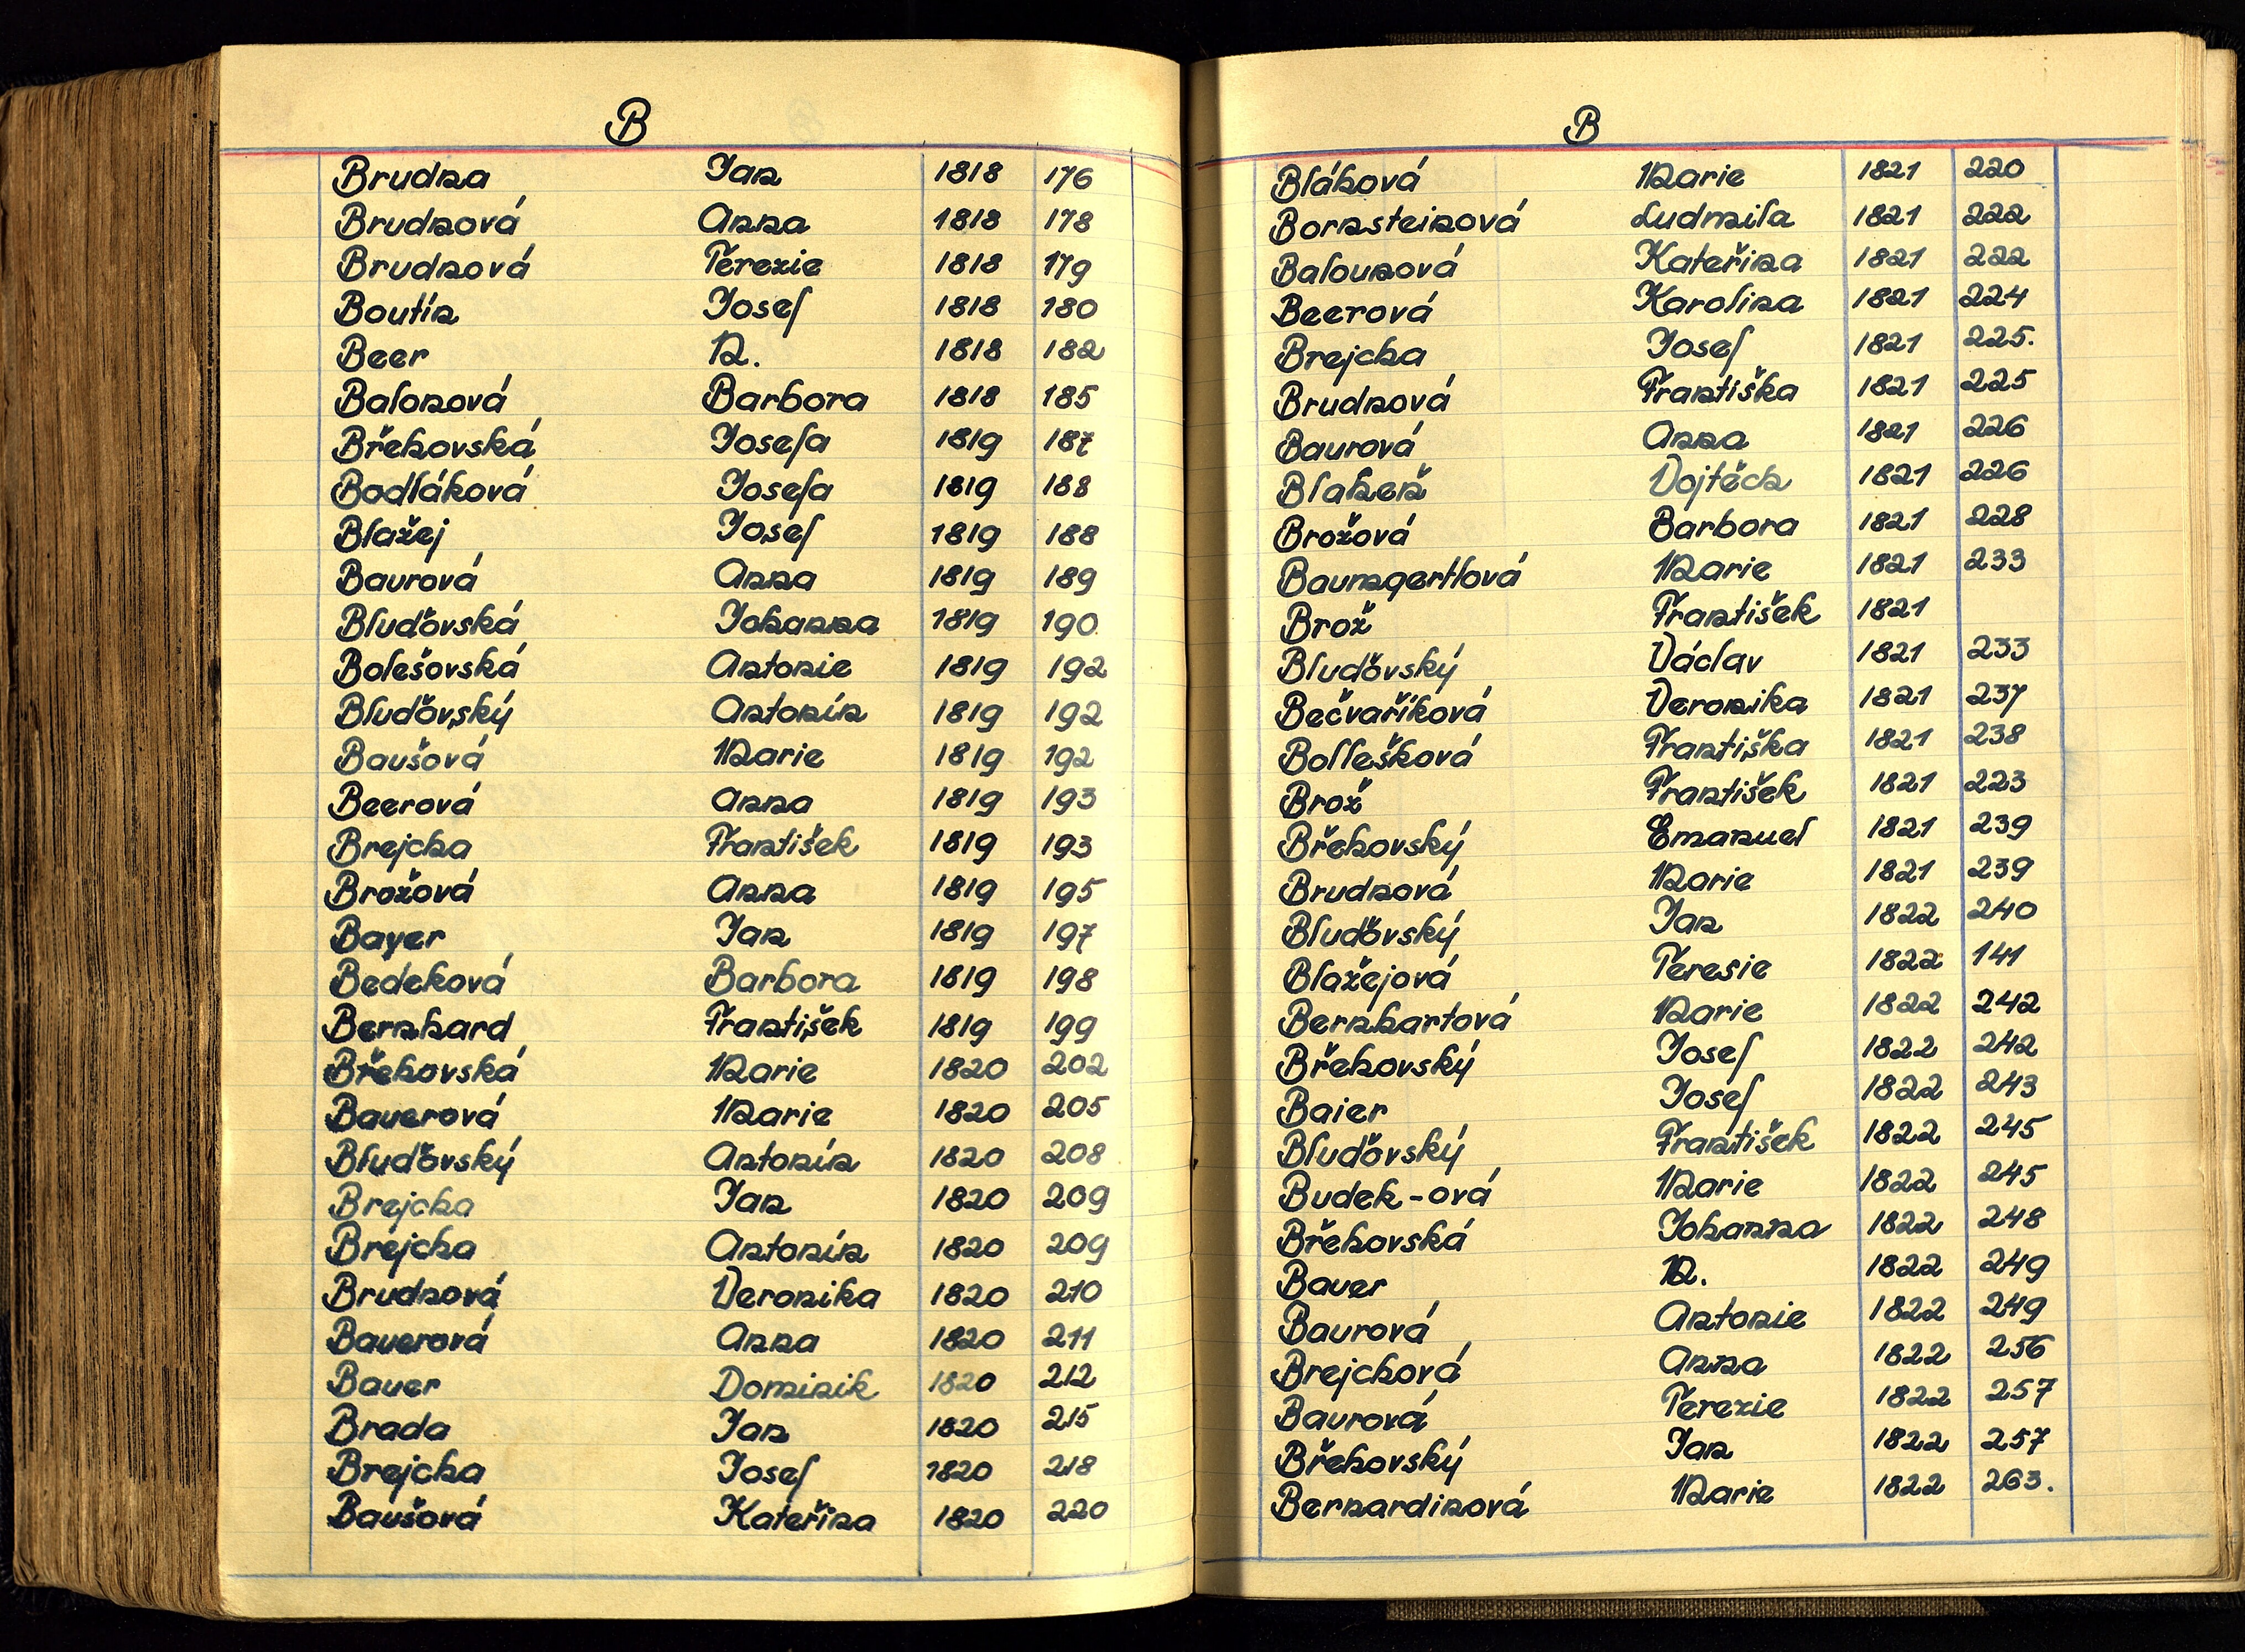 B
Brudna Jan 1818 176
Brudnová Anna 1818 178
Brudnová Terezie 1818 179
Boutín Josef 1818 180
Beer N. 1818 182
Balonová Barbora 1818 185
Břehovská Josefa 1819 187
Bodláková Josefa 1819 188
Blažej Josef 1819 188
Baurová Anna 1819 189
Bluďovská Johanna 1819 190
Bolešovská Antonie 1819 192
Bluďovský Antonín 1819 192
Baušová Marie 1819 192
Beerová Anna 1819 193
Brejcha František 1819 193
Brožová Anna 1819 195
Bayer Jan 1819 197
Bedeková Barbora 1819 198
Bernhard František 1819 199
Břehovská Marie 1820 202
Bauerová Marie 1820 205
Bluďovský Antonín 1820 208
Brejcha Jan 1820 209
Brejcha Antonín 1820 209
Brudnová Veronika 1820 210
Bauerová Anna 1820 211
Bauer Dominik 1820 212
Brada Jan 1820 215
Brejcha Josef 1820 218
Baušová Kateřina 1820 220
B
Bláhová Marie 1821 220
Bornsteinová Ludmila 1821 222
Balounová Kateřina 1821 222
Beerová Karolina 1821 224
Brejcha Josef 1821 225.
Brudnová Františka 1821 225
Baurová Anna 1821 226
Vojtěch 1821 226
Brožová Barbora 1821 228
Baumgertlová Marie 1821 233
Brož František 1821
Bluďovský Václav 1821 233
Bečvaříková Veronika 1821 237
Bollešková Františka 1821 238
Brož František 1821 223
Břehovský Emanuel 1821 239
Brudnová Marie 1821 239
Bluďovský Jan 1822 240
Blažejová Teresie 1822 141
Bernhartová Marie 1822 242
Břehovský Josef 1822 242
Baier Josef 1822 243
Bluďovský František 1822 245
Budek-ová Marie 1822 245
Břehovská Johanna 1822 248
Bauer N. 1822 249
Baurová Antonie 1822 249
Brejchová Anna 1822 256
Baurová Terezie 1822 257
Břehovský Jan 1822 257
Bernardinová Marie 1822 263.